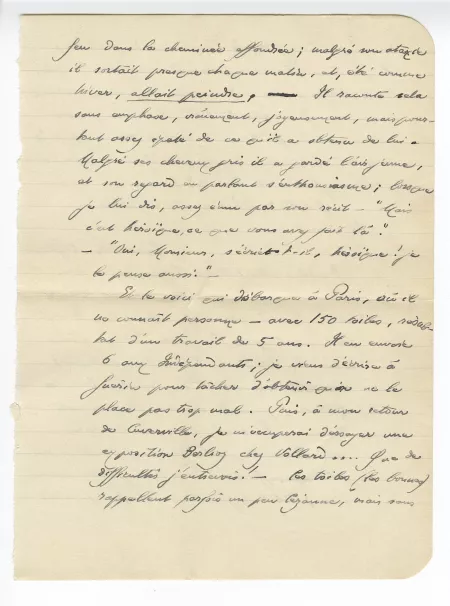 feu dans la cheminée effondrée ; malgré son ataxie
il sortait presque chaque matin, et, été comme
hiver, allait peindre, — Il raconte cela
sans emphase, vraiment, joyeusement, mais pour-
tant assez épaté de ce qu'il a obtenu de lui.
Malgré ses cheveux gris il a gardé l'air jeune,
et son regard en parlant s'enthousiasme ; lorsque
je lui dis, assez ému par son récit – "Mais
c'est héroïque, ce que vous avez fait là".
– "Oui, Monsieur, s'écriet-il, héroïque ! je
le pense aussi." –
Et le voici qui débarque à Paris, où il
ne connaît personne – avec 150 toiles, résul-
tat d'un travail de 5 ans. Il en envoie
6 aux Indépendants ; je viens d'écrire à
pour tâcher d'obtenir qu'on ne le
place pas trop mal. Puis, à mon retour
de Cuverville, je m'occuperai d'essayer une
exposition chez Vollard.... Que de
difficultés j'entrevois ! – Les toiles (les bonnes)
rappellent parfois un peu Cézanne, mais sans